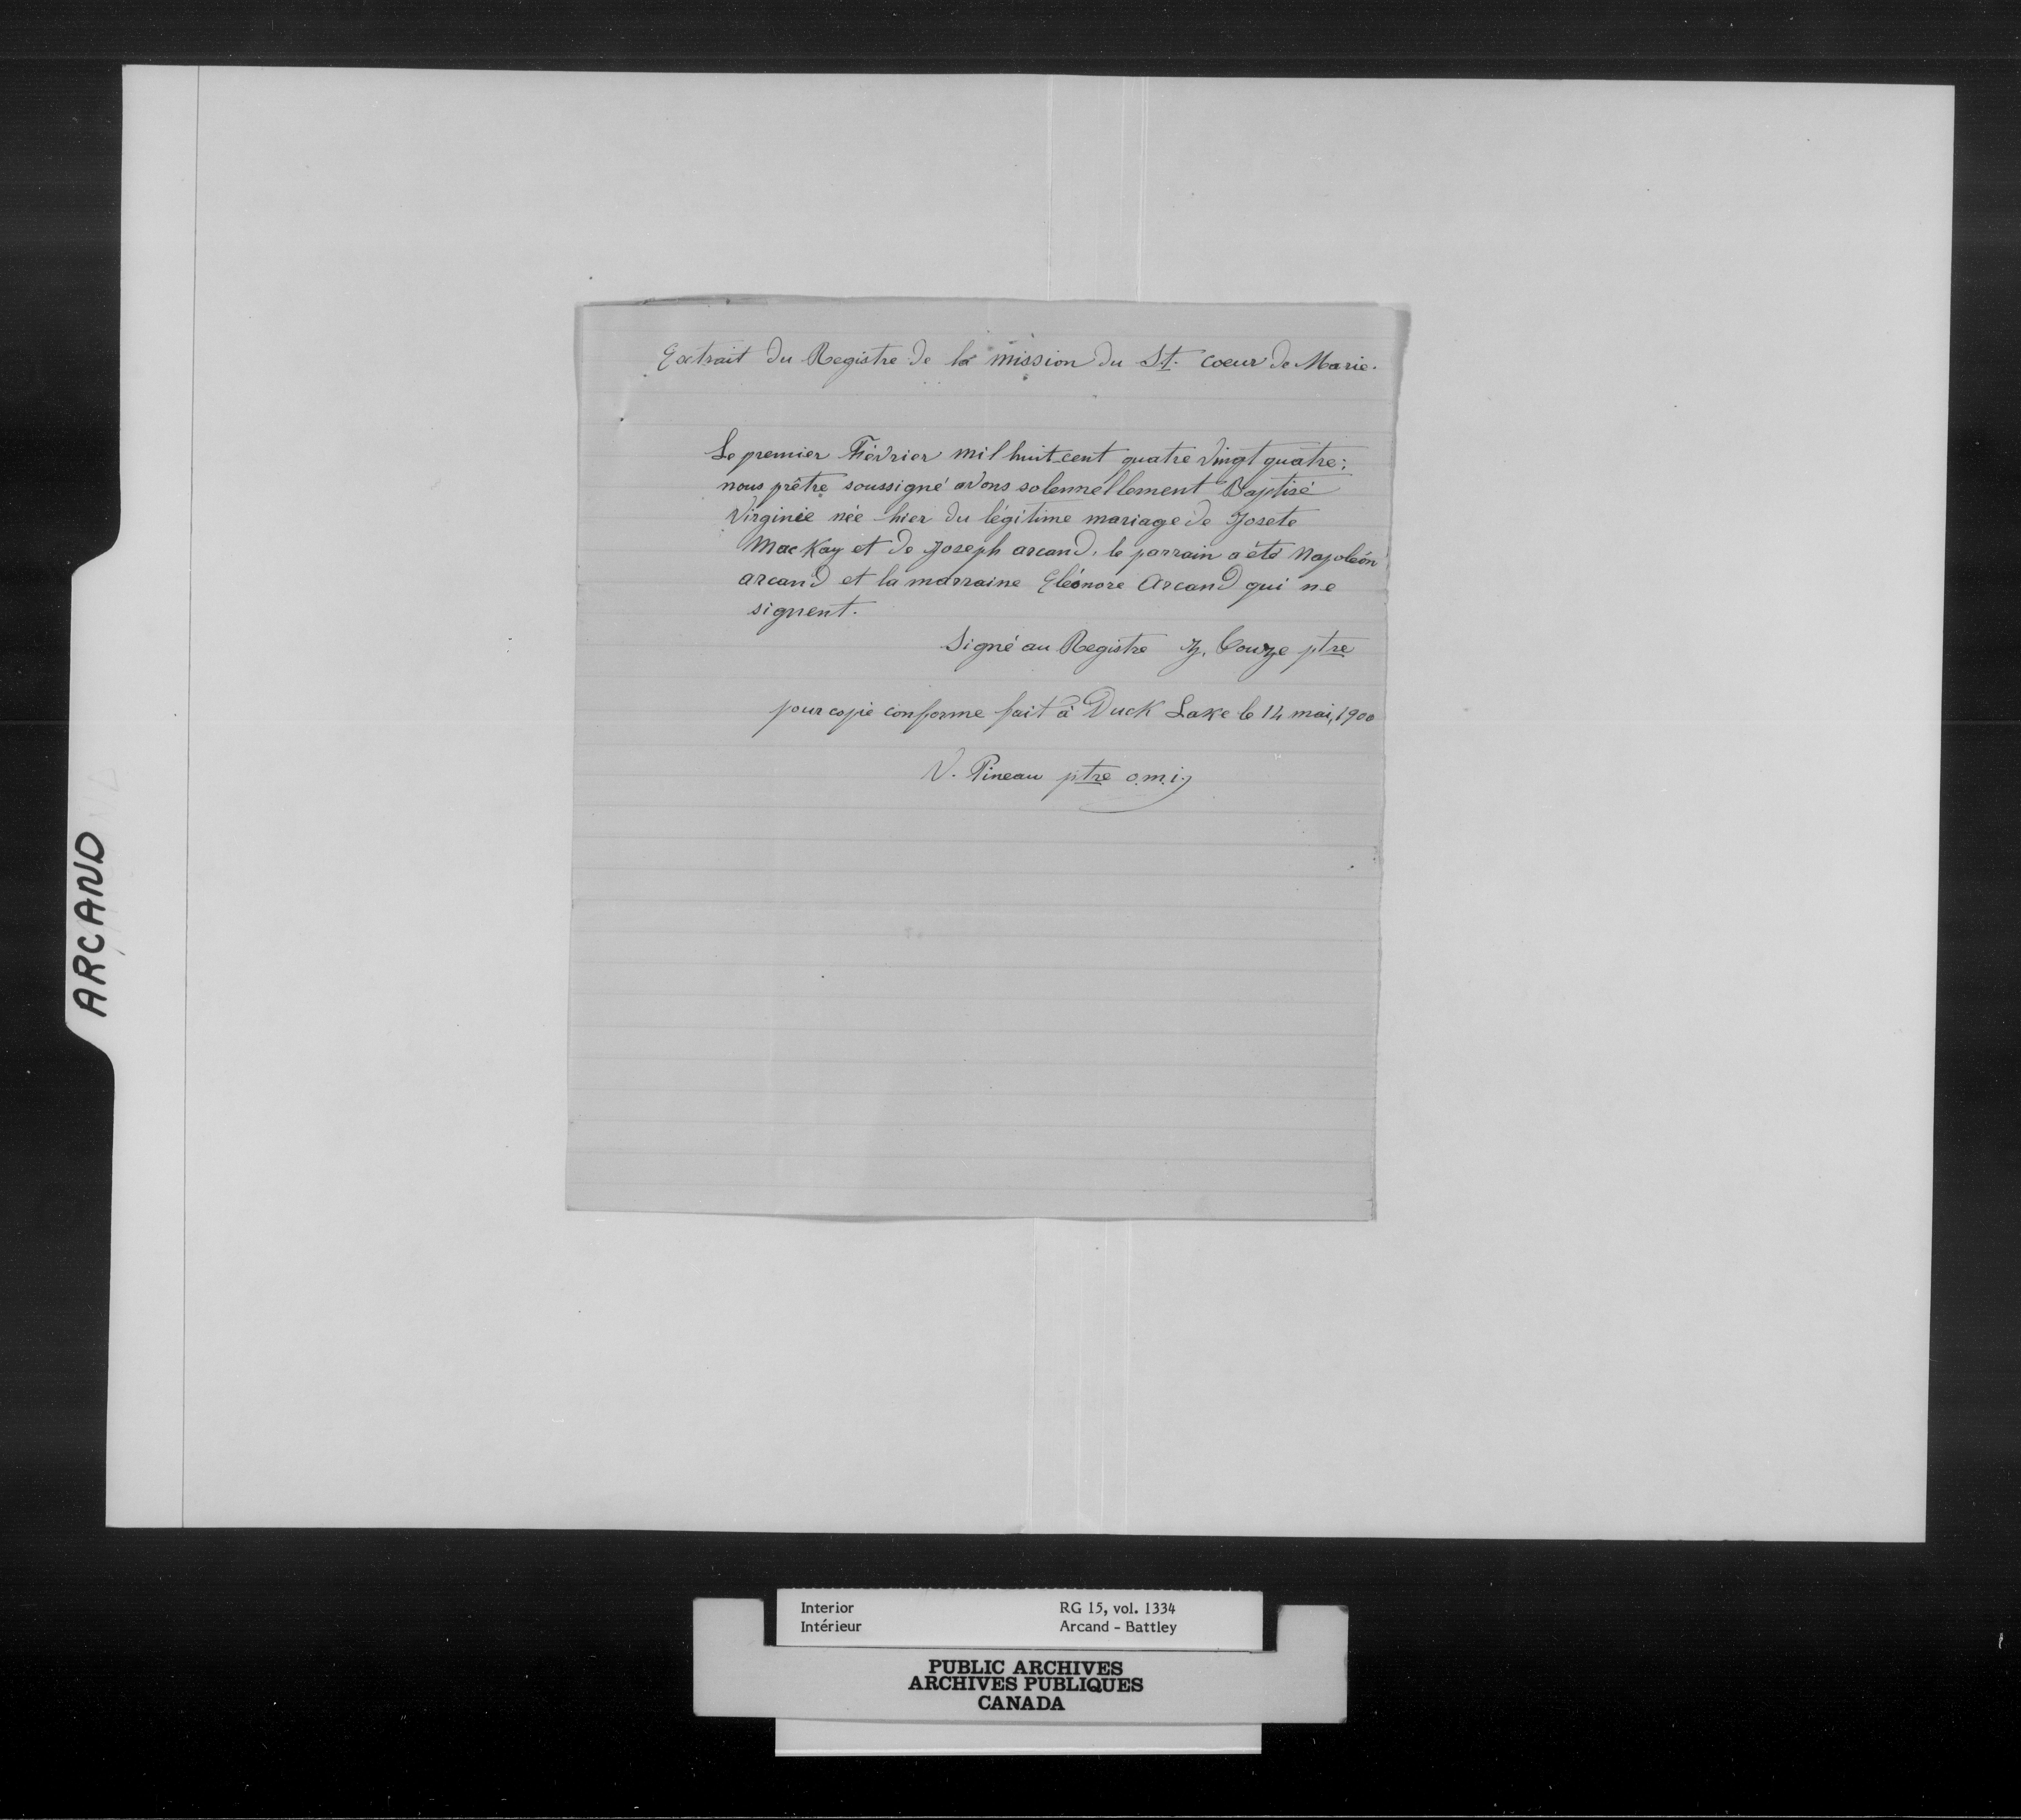 Extrait du Registre de la mission du St. coeur de Marie.
Le premier Février mil huit cent quatre vingt quatre;
nous prêtre soussigné avons solennellement Baptisé
Virginie née hier du légitime mariage de Josete
MacKay et de Joseph arcand. le parrain a été Napoléon
arcand et la marraine Eléonore Arcand qui ne
signent.
Signé au Registre J. Couze ptre
pour copie conforme fait à Duck Lake le 14 mai, 1900
V. Pineau ptre o.m.i.
ARCAND
Interior RG 15, vol. 1334
Intérieur Arcand - Battley
PUBLIC ARCHIVES
ARCHIVES PUBLIQUES
CANADA